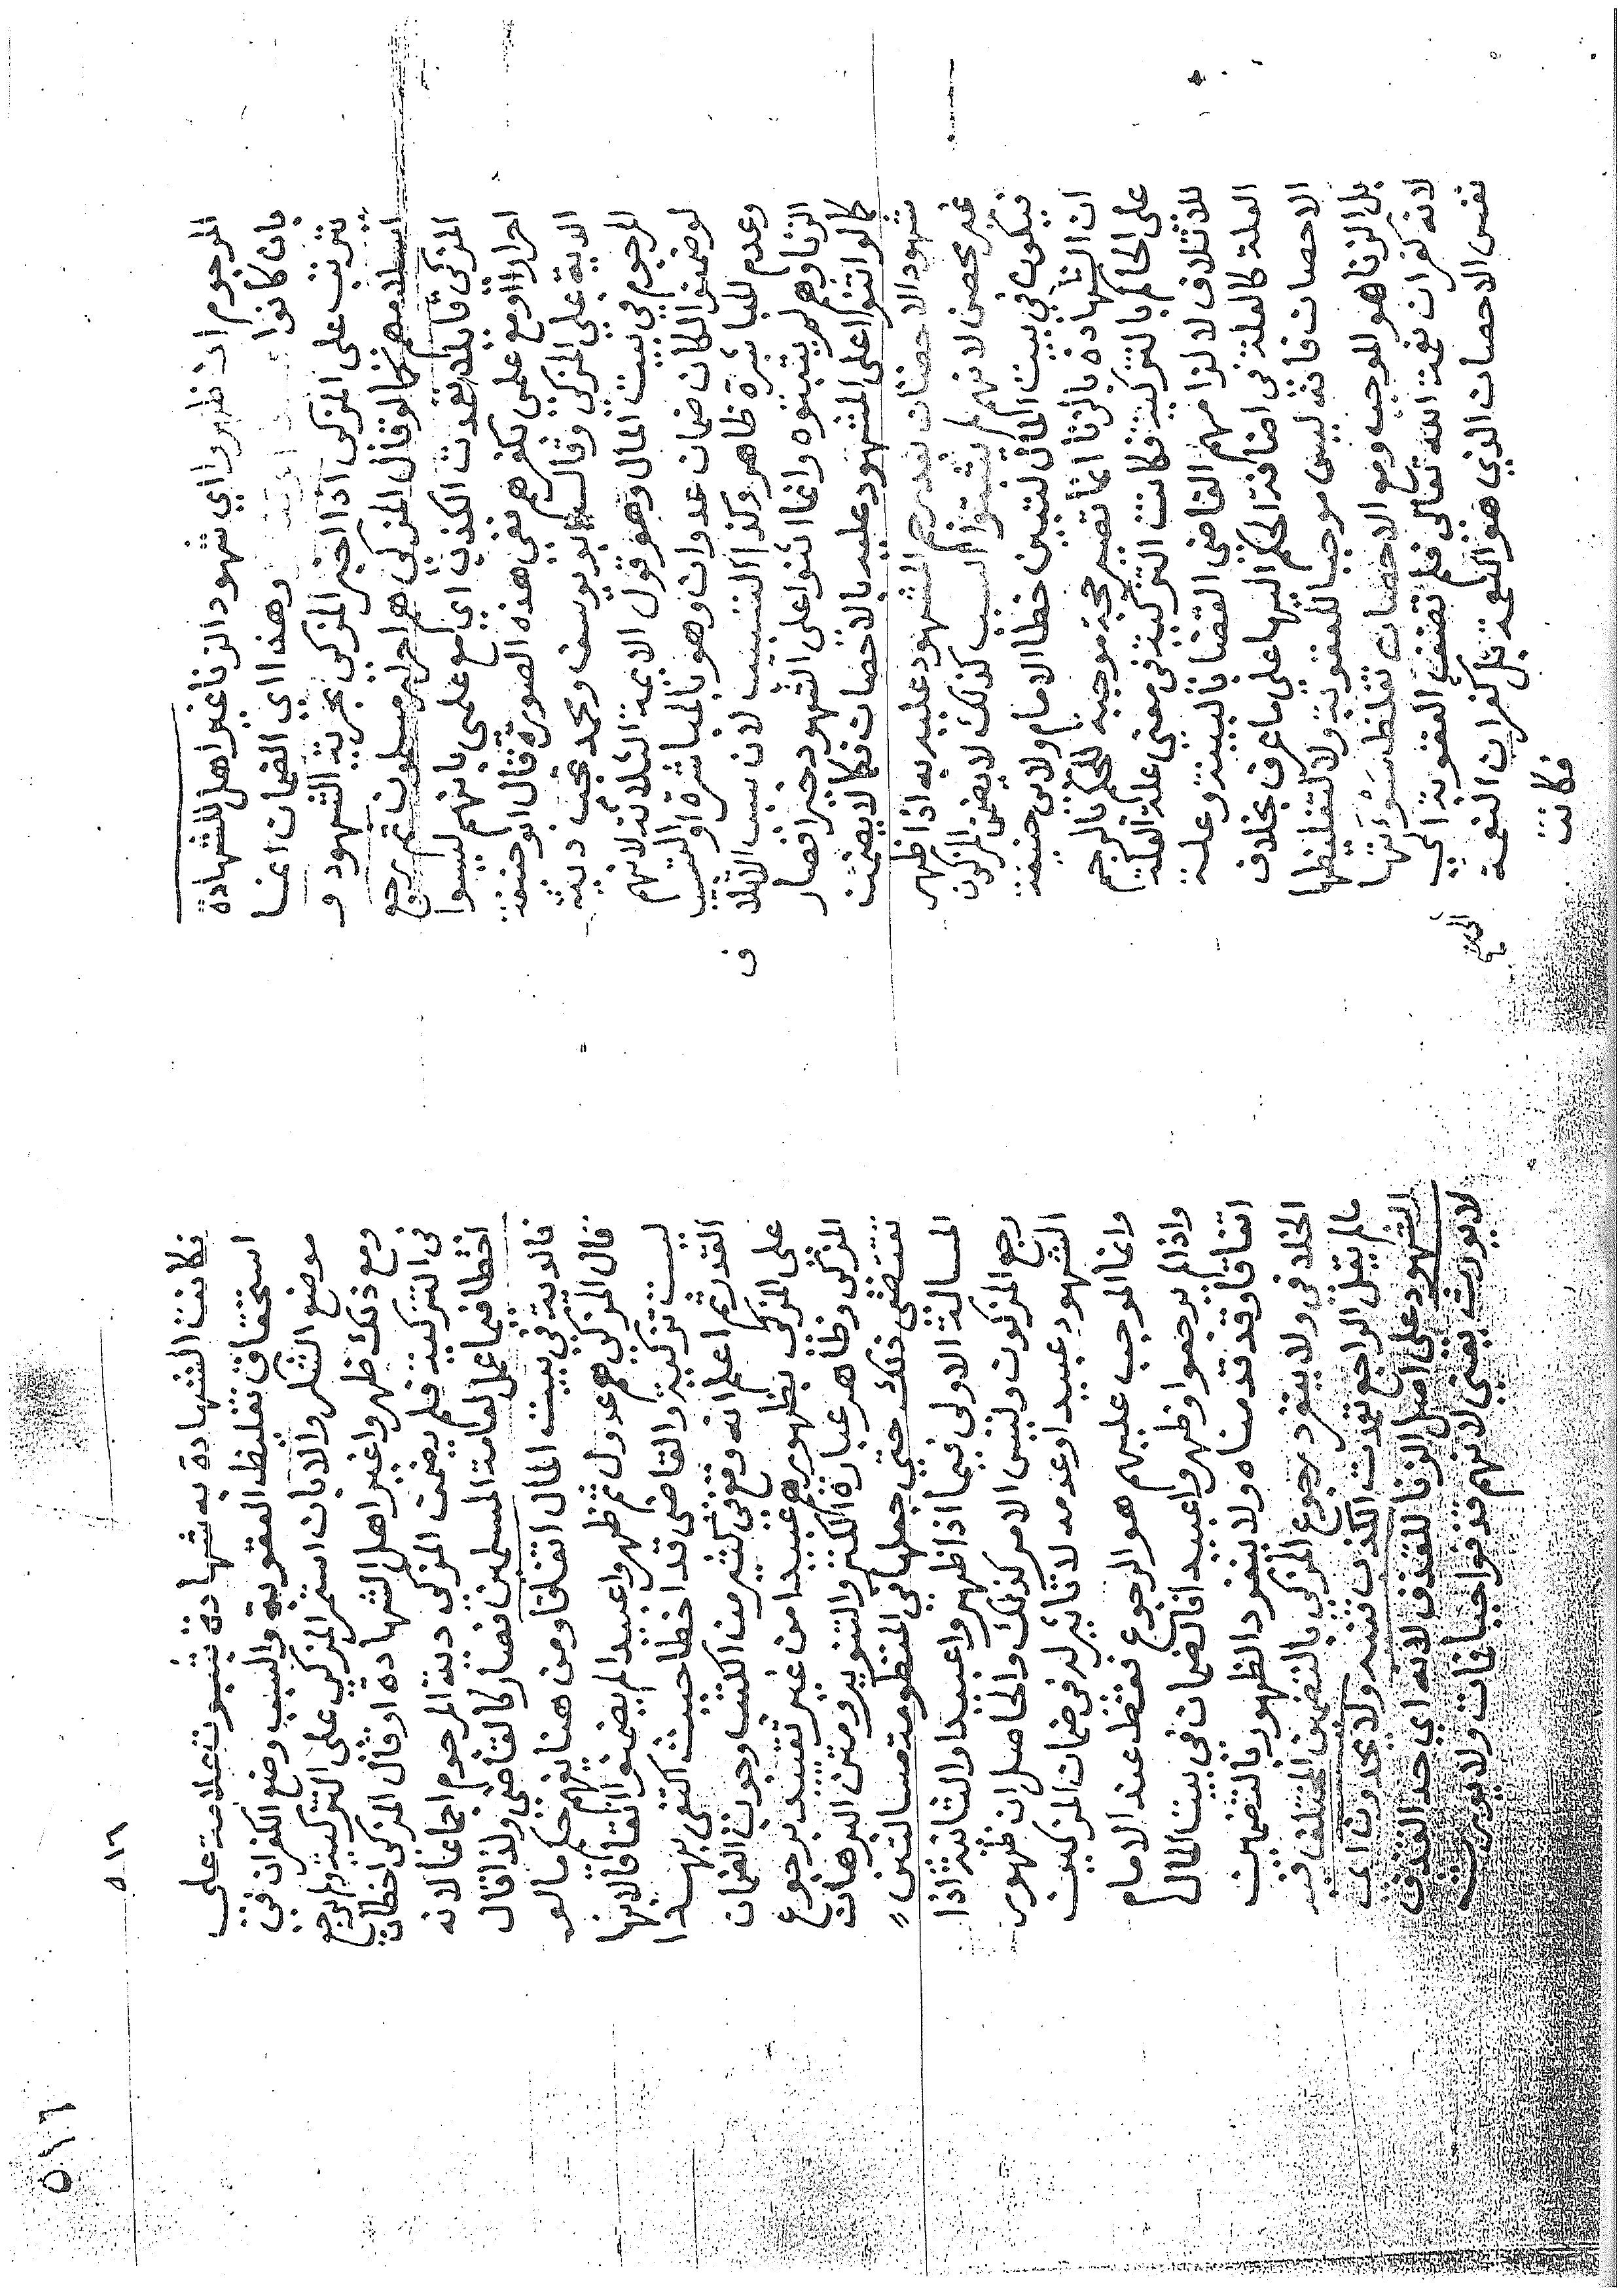 المرجوم ان ظهروا اي شهود الزنا غير اهل للشهادة
بان كانوا وهذا اي الضمان انما
يترتب على المزكي اذا اخبر المزكي بحرية الشهود و
اسلامهم كما لو قال المزكي هم احرار مسلمون ثم رجع
المزكي قايلا تعمدت الكذب اي مع علمي بانهم ليسوا
احرارا او مع علمي بكفرهم ففي هذه الصورة قال ابو حنيفة
الدية علي المزكي وقال ابو يوسف ومحمد تجب دية
المرجوم في بيت المال وهو قول الايمة الثلاثة لانهم
لو ضمنوا لكان ضمان عدوان وهو بالمباشرة او التسبب
وعدم المباشرة ظاهر وكذا التسبب لان سبب الاتلاف
الزنا وهم لم يثبتوه وانما اثنوا على الشهود خيرا فصار
كما لو اثنوا على المشهود عليه بالاحصان فكما لا يضمن
شهود الاحصان بعد رجم المشهود عليه به اذا ظهر
غير محصن لانهم لم يثبتوا السبب كذلك لا يضمن المزكون
فيكون في بيت المال لتبين خطا الامام ولابي حنيفة
ان الشهادة بالزنا انما تصير حجة موجبة للحكم بالرجم
على الحاكم بالتزكية فكانت التزكية في معنى علة العلة
للاتلاف لالزامهم القاضي القضا بالبينة وعلة
العلة كالعلة في اضافة الحكم اليها على ما عرف بخلاف
الاحصان فانه ليس موجبا للعقوبة ولا لتغليظها
بل الزنا هو الموجب ومع الاحصان تغلظ
لانه كفران نعمة الله تعالى فلم تضف العقوبة الي
نفس الاحصان الذي هو النعمة بل كفران النعمة
فكانت
٥١٦
٥١٦
فكانت الشهادة به شهادة بثبوت علامة على
استحقاق تغليظ العقوبة والسبب وضع الكفران في
موضع الشكر والابان استمر المزكي على التزكية ولم يرجع
ومع ذلك ظهروا غير اهل الشهادة او قال المزكي اخطات
في التزكية فلم يضمن المزكي دية المرجوم اجماعا لانه
اخطا فيما عمل لعامة المسلمين فصار كالقاضي ولذا قال
فالدية في بيت المال اتفاقا ومن هنا يفهم حكم ما لو
قال المزكي هم عدول ثم ظهروا عبيدا لم يضمنوا اتفاقا لانها
ليست تزكية والقاضي قد اخطا حيث اكتفى بهذا
القدر ثم اعلم انه وقع في كثير من الكتب وجوب الضمان
على المزكي بظهورهم عبيدا من غير تقييد برجوع
المزكي وظاهر عبارة الكنز والتنوير ومتن البرهان
تقتضي ذلك حتي جعلها في المنظومة مسالتين
المسالة الاولى فيما اذا ظهروا عبيدا والثانية اذا
رجع المزكون وليس الامر كذلك والحاصل ان ظهور
الشهود عبيدا وعدمه لا تاثير له في ضمان المزكيين
وانما الموجب عليهم هو الرجوع فقط عند الامام
واذا لم يرجعوا وظهروا عبيدا فالضمان في بيت المال
اتفاقا وقد قدمناه ولا ينفرد الظهور بالتضمين
الخلافي ولا ينفرد رجوع المزكي بالتضمين المختلف فيه
ما لم يقيل الراجع تعمدت الكذب ولا يحدون اي
الشهود على اصل الزنا للقذف لانه اي حد القذف
لا يورث يعني لانهم قذفوا حيا فمات ولا يورث